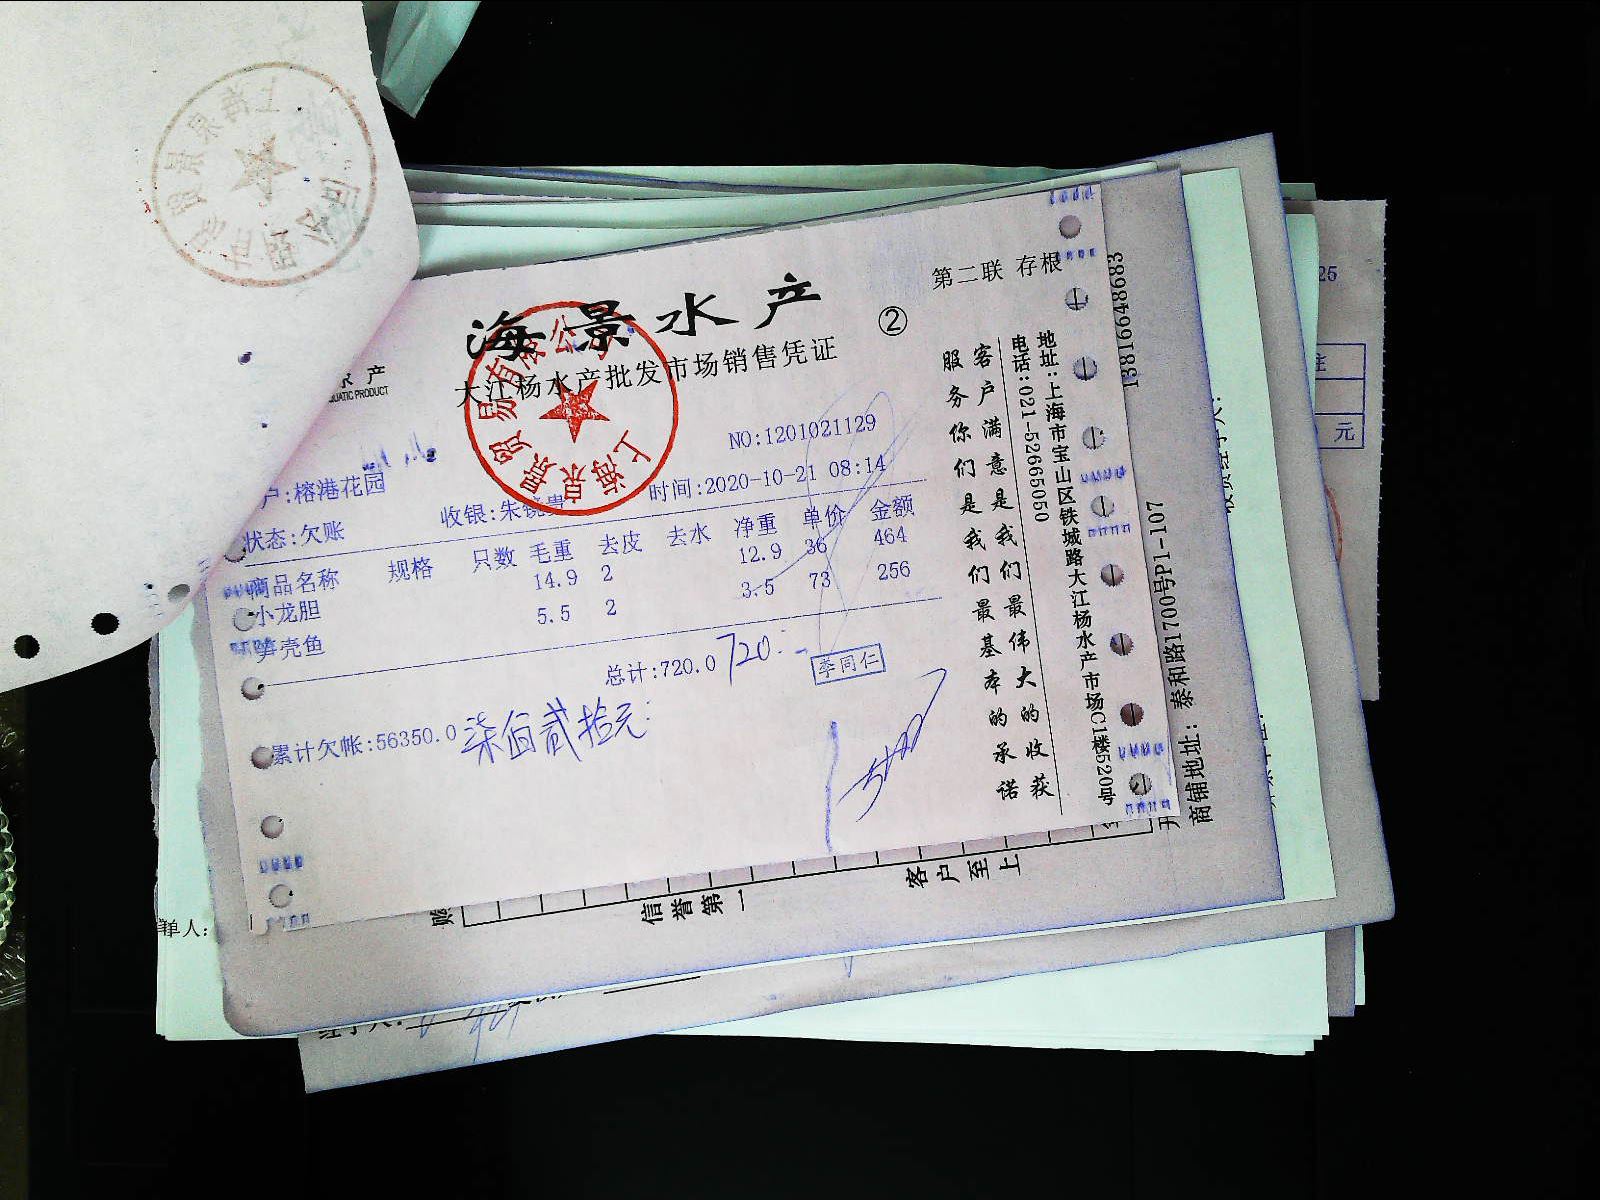 海景水产
②
第二联 存根
大江杨水产批发市场销售凭证
产
UATIC PRODUCT
NO:1201021129
户:榕港花园
收银:朱镜贵
时间:2020-10-21 08:14
状态:欠账
商品名称 规格 只数 毛重 去皮 去水 净重 单价 金额
小龙胆 14.9 2 12.9 36 464
笋壳鱼 5.5 2 3.5 73 256
总计:720.0 720
李同仁
累计欠帐:56350.0 柒佰贰拾元
客户满意是我们最伟大的收获
服务你们是我们最基本的承诺
地址:上海市宝山区铁城路大江杨水产市场C1楼520号
电话:021-52665050
13816648683
商铺地址:泰和路1700号P1-107
上海景贸易有限公司
信誉第一
客户至上
单人:
经手人:
25
注
元